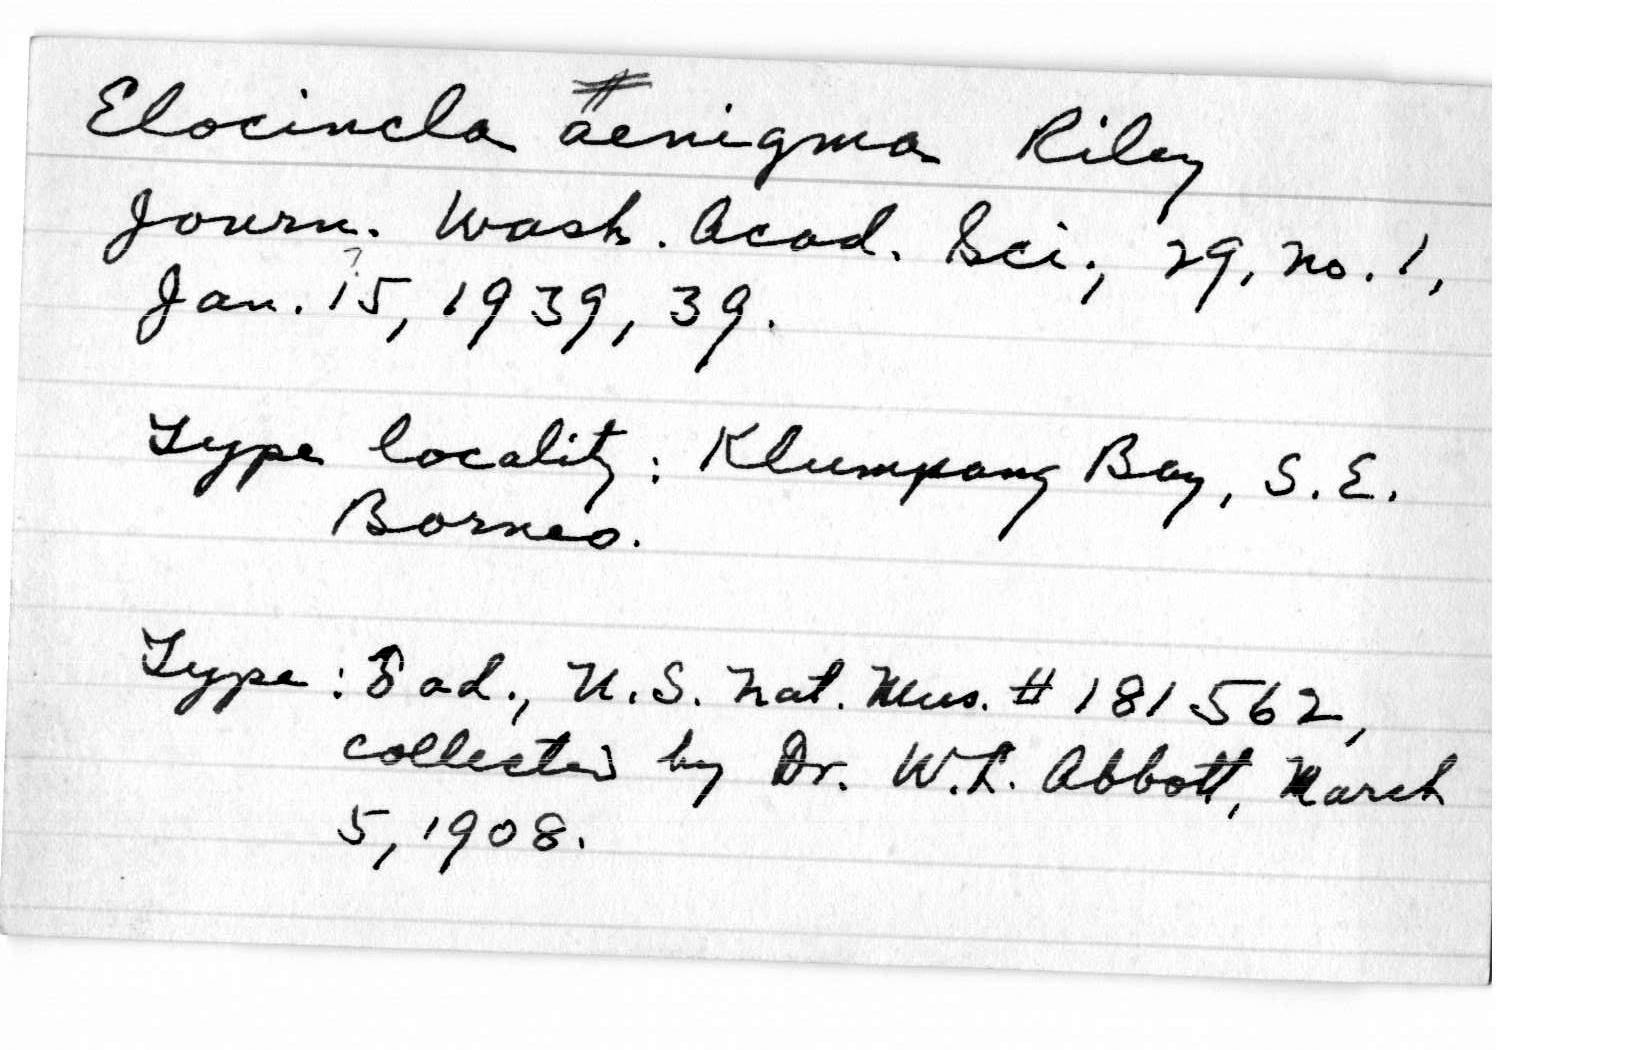 #
Elocincla aenigma Riley
Journ. Wash. Acad. Sci., 29, no. 1,
Jan. 15, 1939, 39.
Type locality: Klumpang Bay, S.E.
Borneo.
Type: ♂ ad., U.S. Nat. Mus. # 181562,
collected by Dr. W.L. Abbott, March
5, 1908.